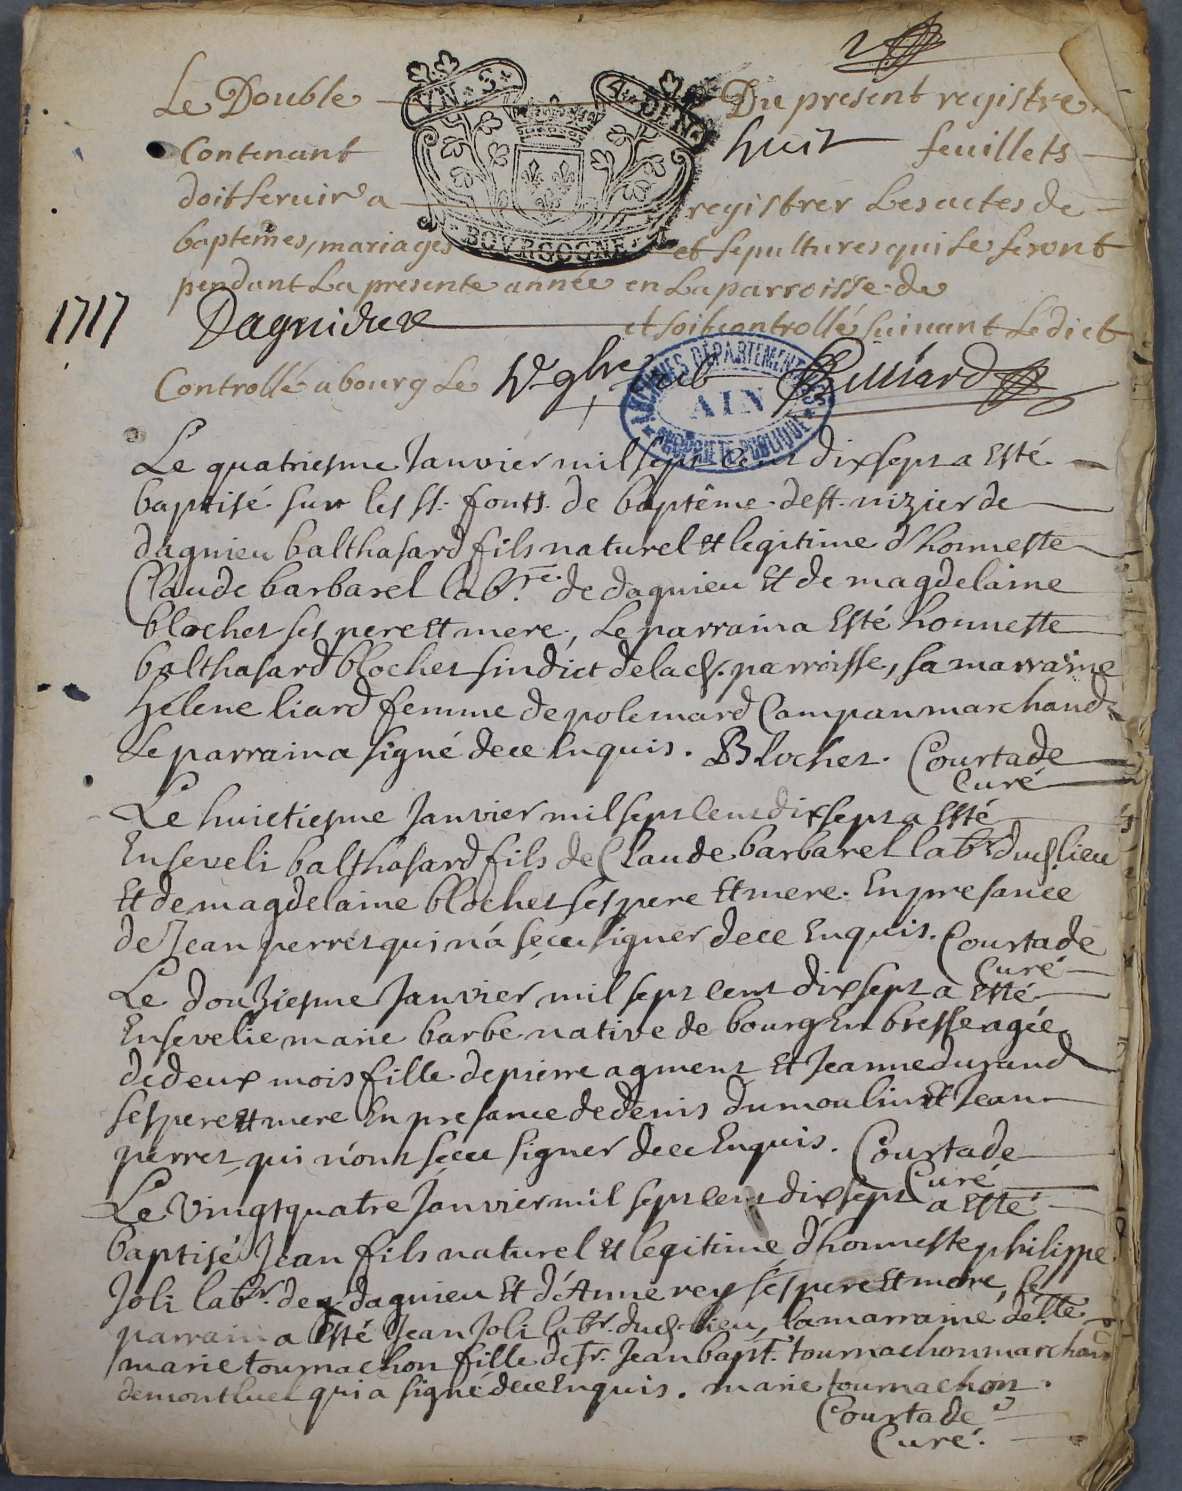 2
Le Double Du present registre
VN·S· A·DEN·
Contenant huit feuillets
doit servir a registrer Les actes de
BOVRGOGNE
baptemes, mariages et sepultures qui se feront
pendant La presente année en La parroisse de
1717 Dagnieu et soit controllé suivant Ledict
Controllé a bourg Le
ARCHIVES DÉPARTEMENTALES
AIN
PROPRIÉTÉ PUBLIQUE
Le quatriesme Janvier mil sept cent dix sept a Esté
baptisé sur les ss. fonts de baptême de st. nizier de
dagnieu balthasard fils naturel et legitime d'honneste
Claude barbarel labr. de dagnieu Et de magdelaine
blochet ses pere Et mere, Le parrain a Esté honneste
balthasard blochet sindict de lad. parroisse, sa marraine
hélene liard femme de polemard Compan marchand
Le parrain a signé de ce Enquis. Blochet. Courtade
Curé
Le huictiesme Janvier mil sept cent dix sept a Esté
Enseveli balthasard fils de Claude barbarel labr. dud. lieu
Et de magdelaine blochet ses pere Et mere. En presance
de Jean perret qui n'a sçeu signer de ce Enquis. Courtade
Curé
Le douziesme Janvier mil sept cent dix sept a Esté
Ensevelie marie barbe native de bourg En bresse agée
de deux mois fille de pierre agment Et Jeanne durand
ses pere Et mere En presance de denis dumoulin Et Jean
perret qui n'ont sçeu signer de ce Enquis. Courtade
Curé
Le vingt quatre Janvier mil sept cent dix sept a Esté
baptisé Jean fils naturel et legitime d'honneste philippe
Joli labr. de dagnieu Et d'Anne rey ses pere Et mere, le
parrain a Esté Jean Joli labr. dud. lieu, la marraine delle.
marie tournachon fille de sr. Jean bapt. tournachon marchand
de montluel qui a signé de ce Enquis. marie tournachon.
Courtade
Curé.